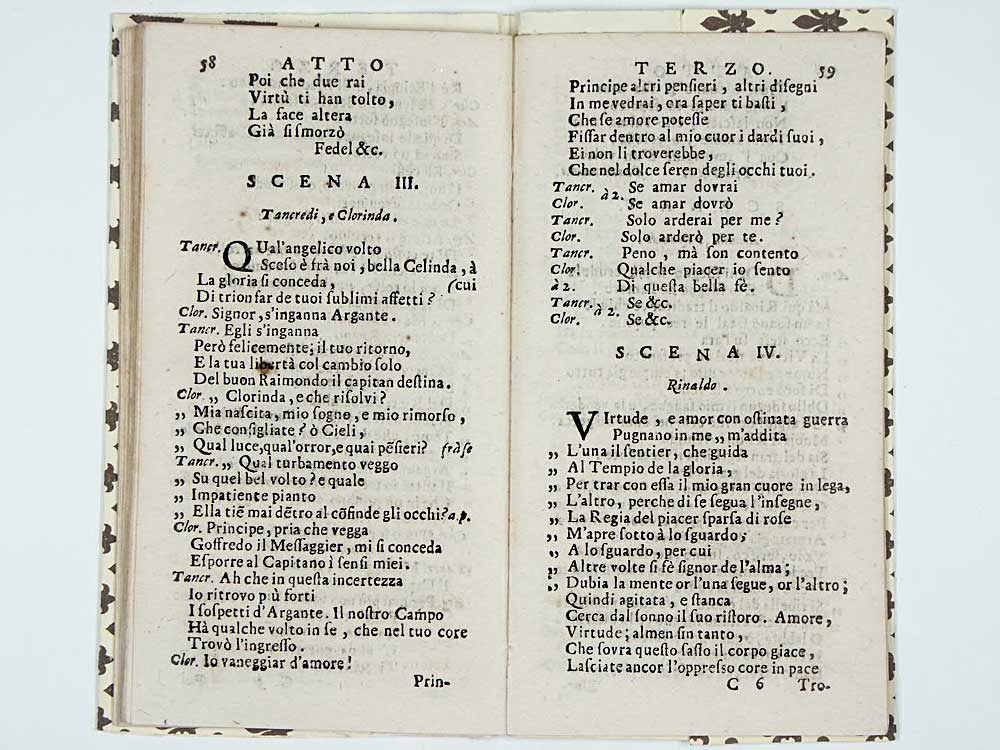 58 ATTO
Poi che due rai
Virtù ti han tolto,
La face altera
Già si smorzò
Fedel &c.
SCENA III.
Tancredi, e Clorinda.
Tancr. QUal'angelico volto
Sceso è frà noi, bella Celinda, à
La gloria si conceda, (cui
Di trionfar de tuoi sublimi affetti?
Clor. Signor, s'inganna Argante.
Tancr. Egli s'inganna
Però felicemente; il tuo ritorno,
E la tua libertà col cambio solo
Del buon Raimondo il capitan destina.
Clor. „ Clorinda, e che risolvi?
„ Mia nascita, mio sogno, e mio rimorso,
„ Che consigliate? ò Cieli,
„ Qual luce, qual'orror, e quai pẽsieri? frà se
Tancr. „ Qual turbamento veggo
„ Su quel bel volto? e quale
„ Impatiente pianto
„ Ella tiẽ mai dẽtro al cõfin de gli occhi? a.p.
Clor. Principe, pria che vegga
Goffredo il Messaggier, mi si conceda
Esporre al Capitano i sensi miei.
Tancr. Ah che in questa incertezza
Io ritrovo più forti
I sospetti d'Argante. Il nostro Campo
Hà qualche volto in se, che nel tuo core
Trovò l'ingresso.
Clor. Io vaneggiar d'amore!
Prin-
TERZO. 59
Principe altri pensieri, altri disegni
In me vedrai, ora saper ti basti,
Che se amore potesse
Fissar dentro al mio cuor i dardi suoi,
Ei non li troverebbe,
Che nel dolce seren degli occhi tuoi.
Tancr. à 2. Se amar dovrai
Clor. Se amar dovrò
Tancr. Solo arderai per me?
Clor. Solo arderò per te.
Tancr. Peno, mà son contento
Clor. Qualche piacer io sento
à 2. Di questa bella fè.
Tancr. à 2. Se &c.
Clor. Se &c.
SCENA IV.
Rinaldo.
VIrtude, e amor con ostinata guerra
Pugnano in me „ m'addita
„ L'una il sentier, che guida
„ Al Tempio de la gloria,
„ Per trar con essa il mio gran cuore in lega,
„ L'altro, perche di se segua l'insegne,
„ La Regia del piacer sparsa di rose
„ M'apre sotto à lo sguardo;
„ A lo sguardo, per cui
„ Altre volte si fè signor de l'alma;
„ Dubia la mente or l'una segue, or l'altro;
Quindi agitata, e stanca
Cerca dal sonno il suo ristoro. Amore,
Virtude; almen sin tanto,
Che sovra questo sasso il corpo giace,
Lasciate ancor l'oppresso core in pace
C 6 Tro-